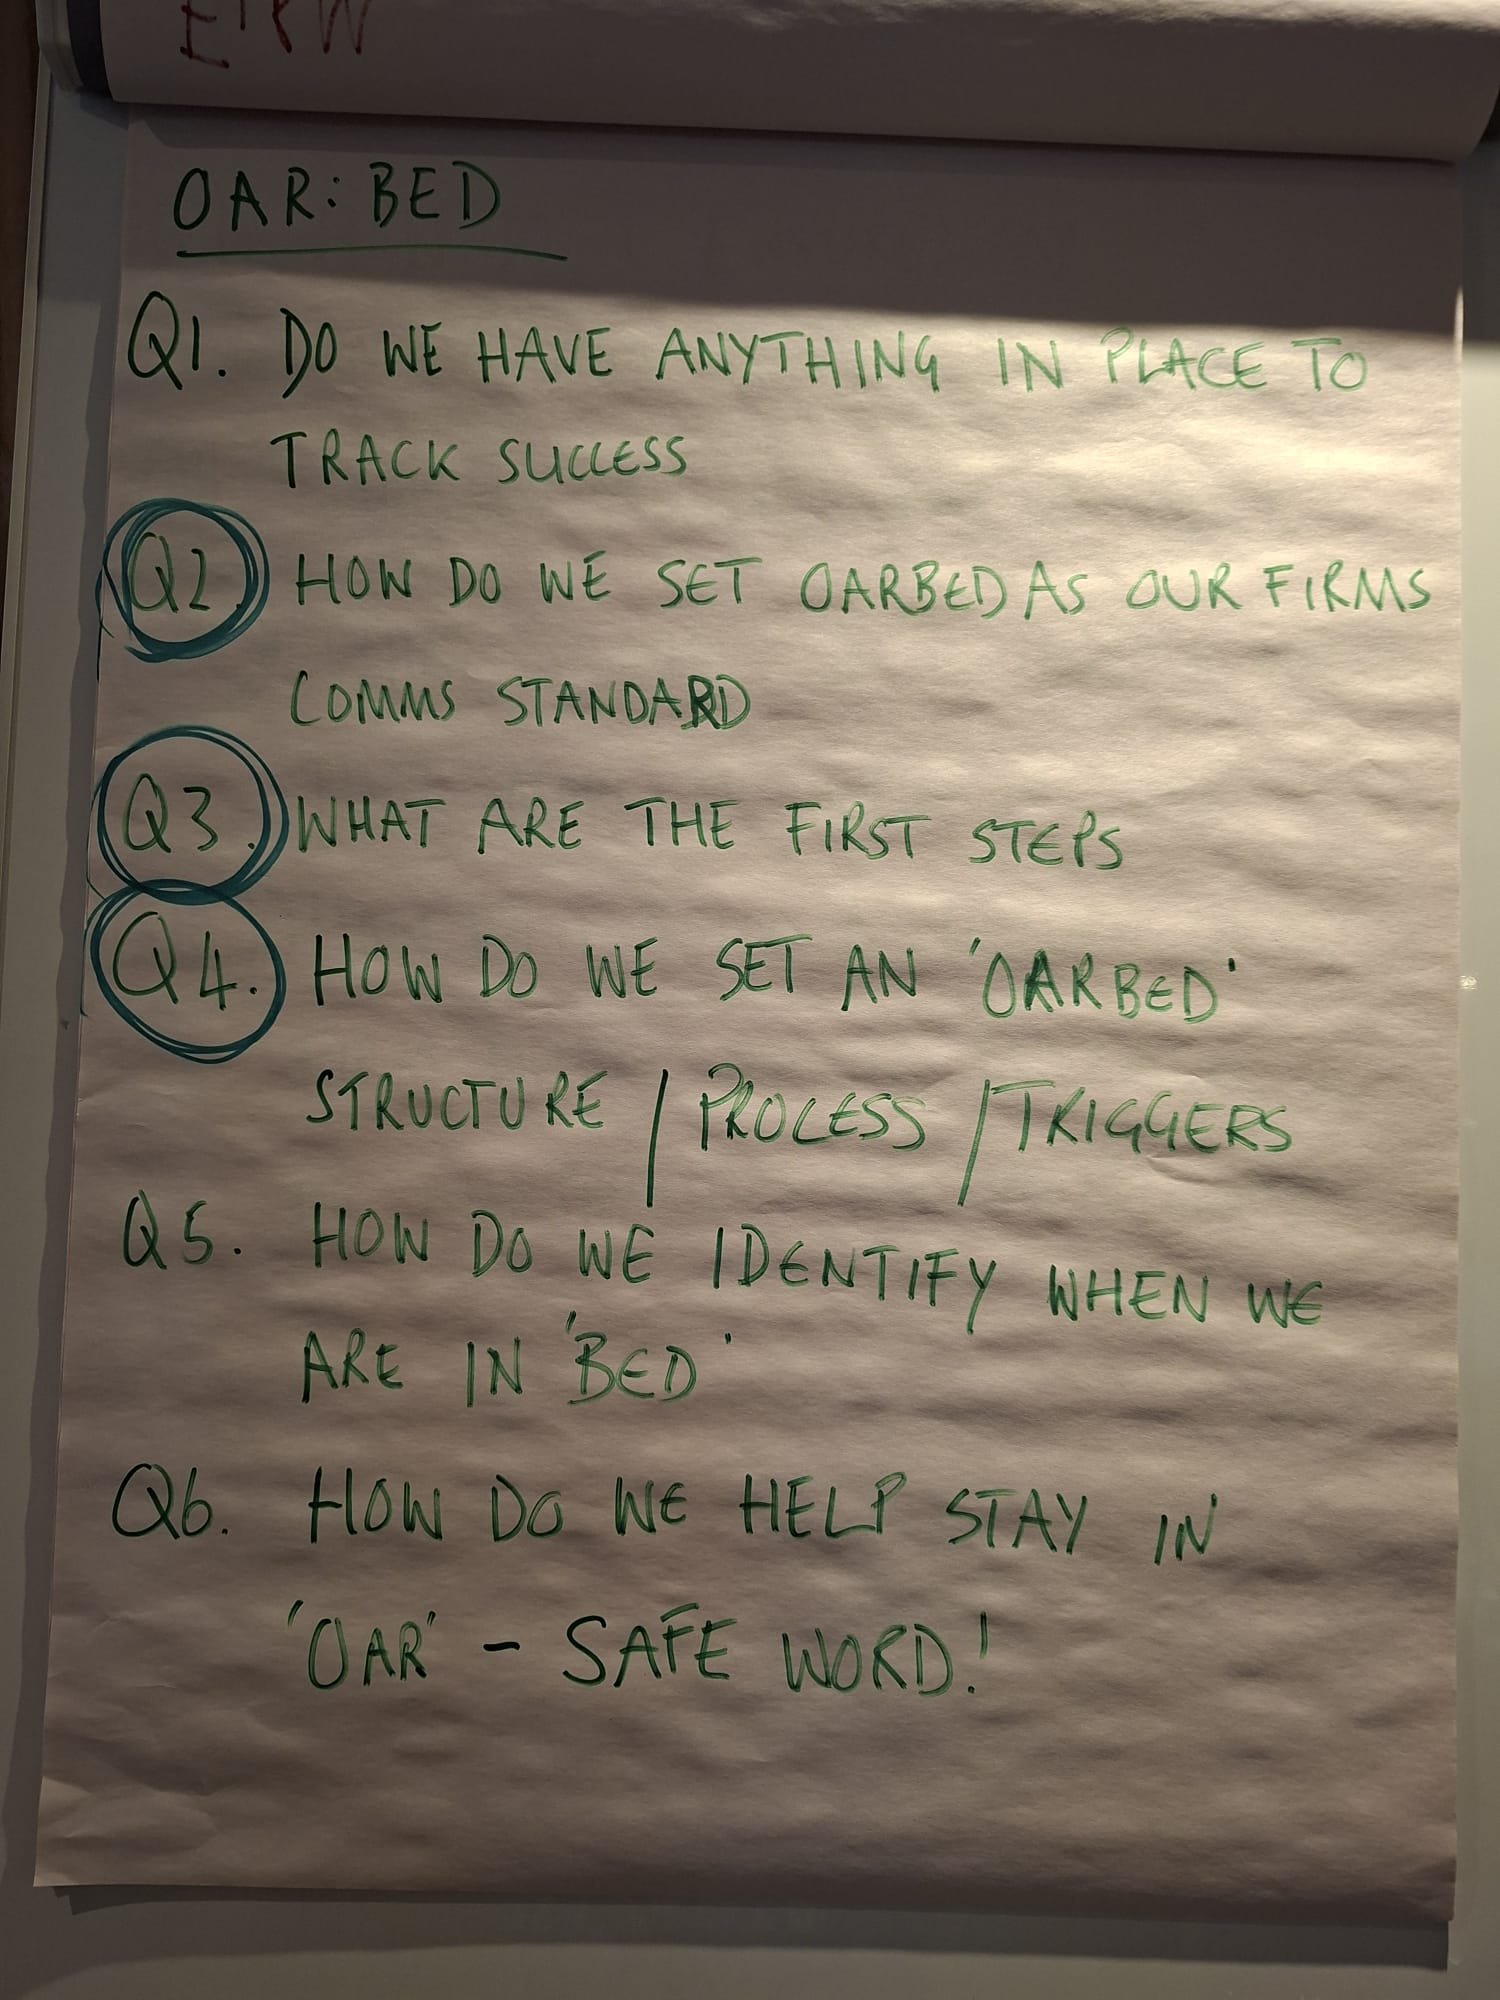 OAR: BED
Q1. DO WE HAVE ANYTHING IN PLACE TO
TRACK SUCCESS
Q2. HOW DO WE SET OARBED AS OUR FIRMS
COMMS STANDARD
Q3. WHAT ARE THE FIRST STEPS
Q4. HOW DO WE SET AN 'OARBED'
STRUCTURE / PROCESS / TRIGGERS
Q5. HOW DO WE IDENTIFY WHEN WE
ARE IN 'BED'
Q6. HOW DO WE HELP STAY IN
'OAR' - SAFE WORD!